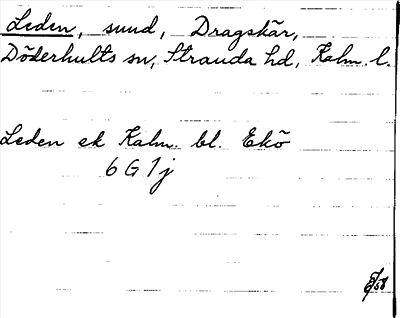 Leden, sund, Dragskär,
Döderhults sn, Stranda hd, Kalm. l.
Leden ek Kalm. bl. Ekö
6 G 1 j